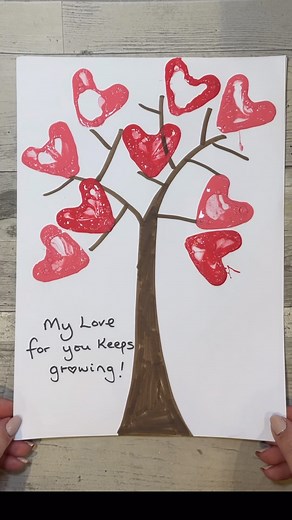 My Love
for you Keeps
growing!